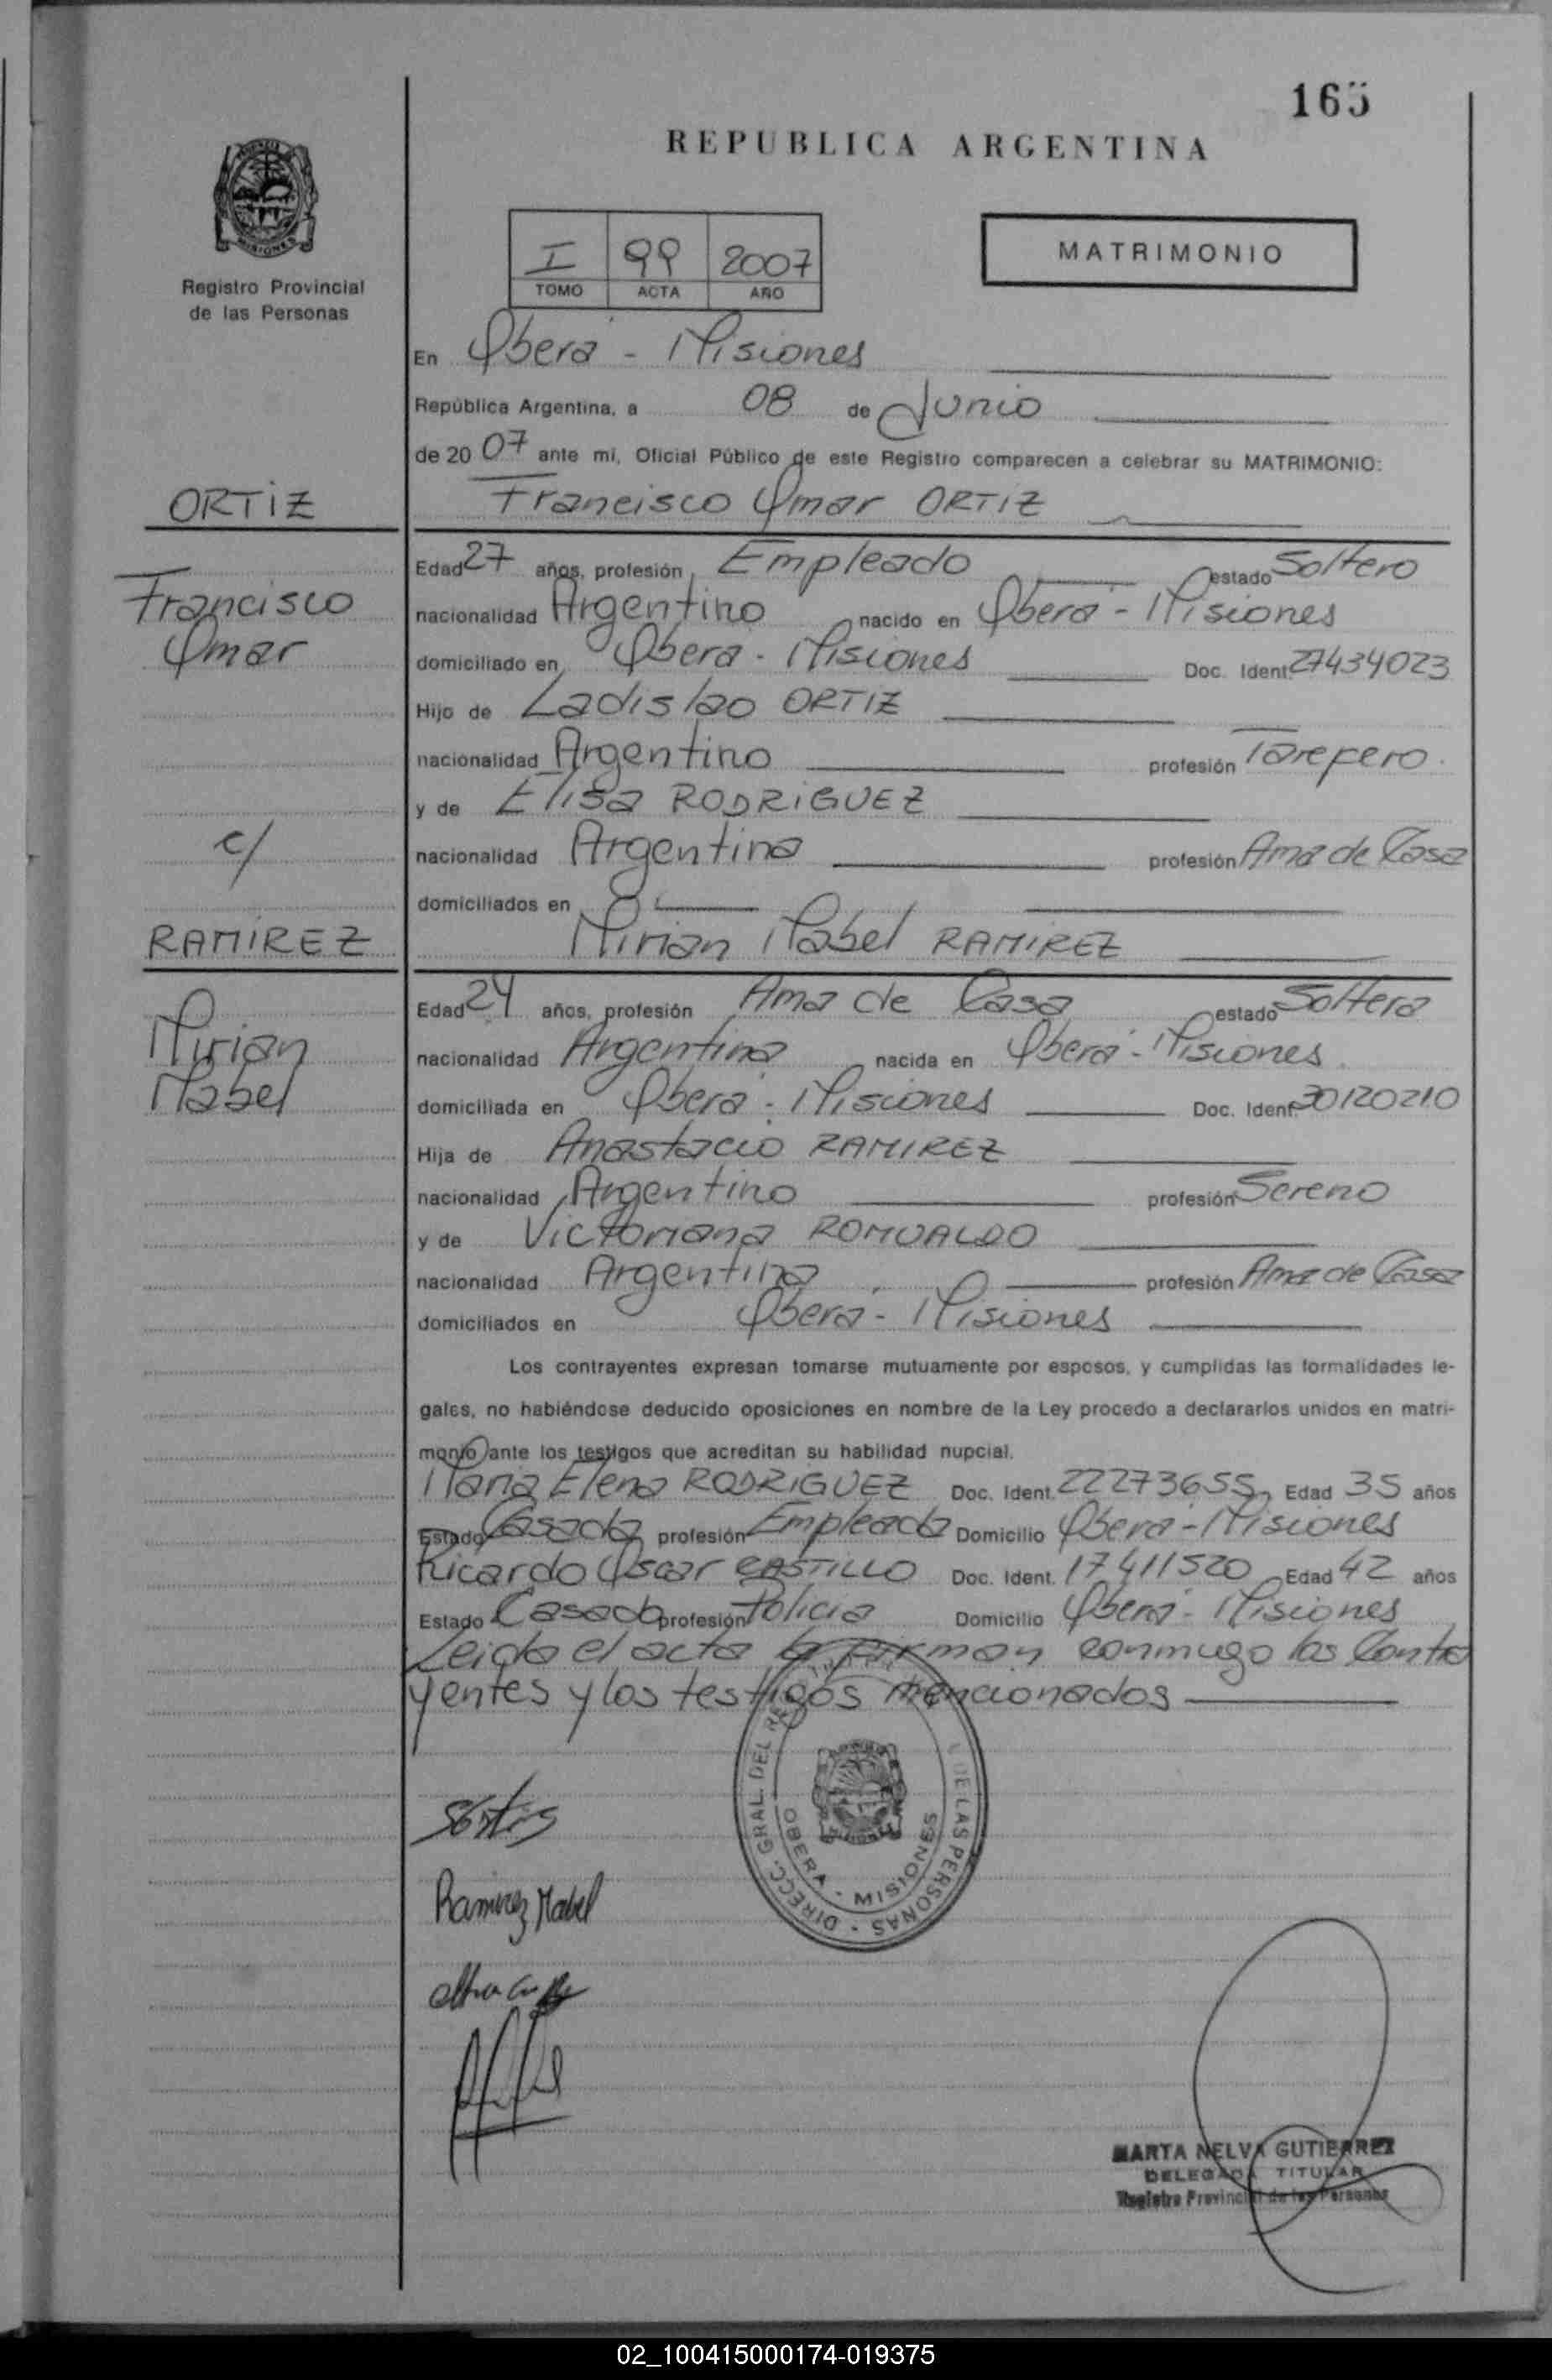 165
REPUBLICA ARGENTINA
Registro Provincial
de las Personas
I 99 2007
TOMO ACTA AÑO
MATRIMONIO
En Oberá - Misiones
República Argentina, a 08 de Junio
de 2007 ante mí, Oficial Público de este Registro comparecen a celebrar su MATRIMONIO:
ORTIZ
Francisco Omar ORTIZ
Edad 27 años, profesión Empleado estado Soltero
Francisco
nacionalidad Argentino nacido en Oberá - Misiones
Omar
domiciliado en Oberá - Misiones Doc. Ident. 27434023
Hijo de Ladislao ORTIZ
nacionalidad Argentino profesión Tarefero.
y de Elisa RODRIGUEZ
c/
nacionalidad Argentina profesión Ama de Casa
domiciliados en
RAMIREZ
Mirian Mabel RAMIREZ
Edad 24 años, profesión Ama de Casa estado Soltera
Mirian
nacionalidad Argentina nacida en Oberá - Misiones
Mabel
domiciliada en Oberá - Misiones Doc. Ident. 30120210
Hija de Anastacio RAMIREZ
nacionalidad Argentino profesión Sereno
y de Victoriana ROMUALDO
nacionalidad Argentina profesión Ama de Casa
domiciliados en Oberá - Misiones
Los contrayentes expresan tomarse mutuamente por esposos, y cumplidas las formalidades le-
gales, no habiéndose deducido oposiciones en nombre de la Ley procedo a declararlos unidos en matri-
monio ante los testigos que acreditan su habilidad nupcial.
Maria Elena RODRIGUEZ Doc. Ident. 22273655 Edad 35 años
Estado Casada profesión Empleada Domicilio Oberá - Misiones
Ricardo Oscar CASTILLO Doc. Ident. 17411520 Edad 42 años
Estado Casado profesión Policia Domicilio Oberá - Misiones
Leida el acta la firman conmigo los Contra
yentes y los testigos mencionados
DIRECC. GRAL. DEL DE LAS PERSONAS
OBERA - MISIONES
Ramirez Mabel
MARTA NELVA GUTIERREZ
DELEGADA TITULAR
Registro Provincial de las Personas
02_100415000174-019375